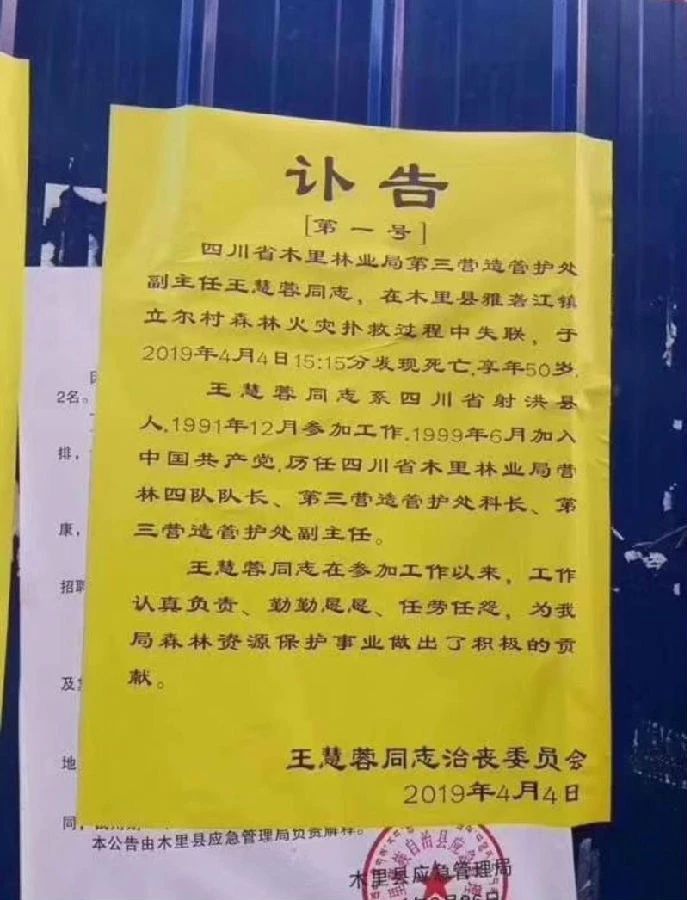 讣告
[第一号]
四川省木里林业局第三营造管护处
副主任王慧蓉同志，在木里县雅砻江镇
立尔村森林火灾扑救过程中失联，于
2019年4月4日15:15分发现死亡,享年50岁,
王慧蓉同志系四川省射洪县
人,1991年12月参加工作,1999年6月加入
中国共产党,历任四川省木里林业局营
林四队队长、第三营造管护处科长、第
三营造管护处副主任。
王慧蓉同志在参加工作以来，工作
认真负责、勤勤恳恳、任劳任怨，为我
局森林资源保护事业做出了积极的贡
献。
王慧蓉同志治丧委员会
2019年4月4日
2名。
排，
康，
招聘
及
地
同，
本公告由木里县应急管理局负责解释。
木里县应急管理局
族自治县应急管理